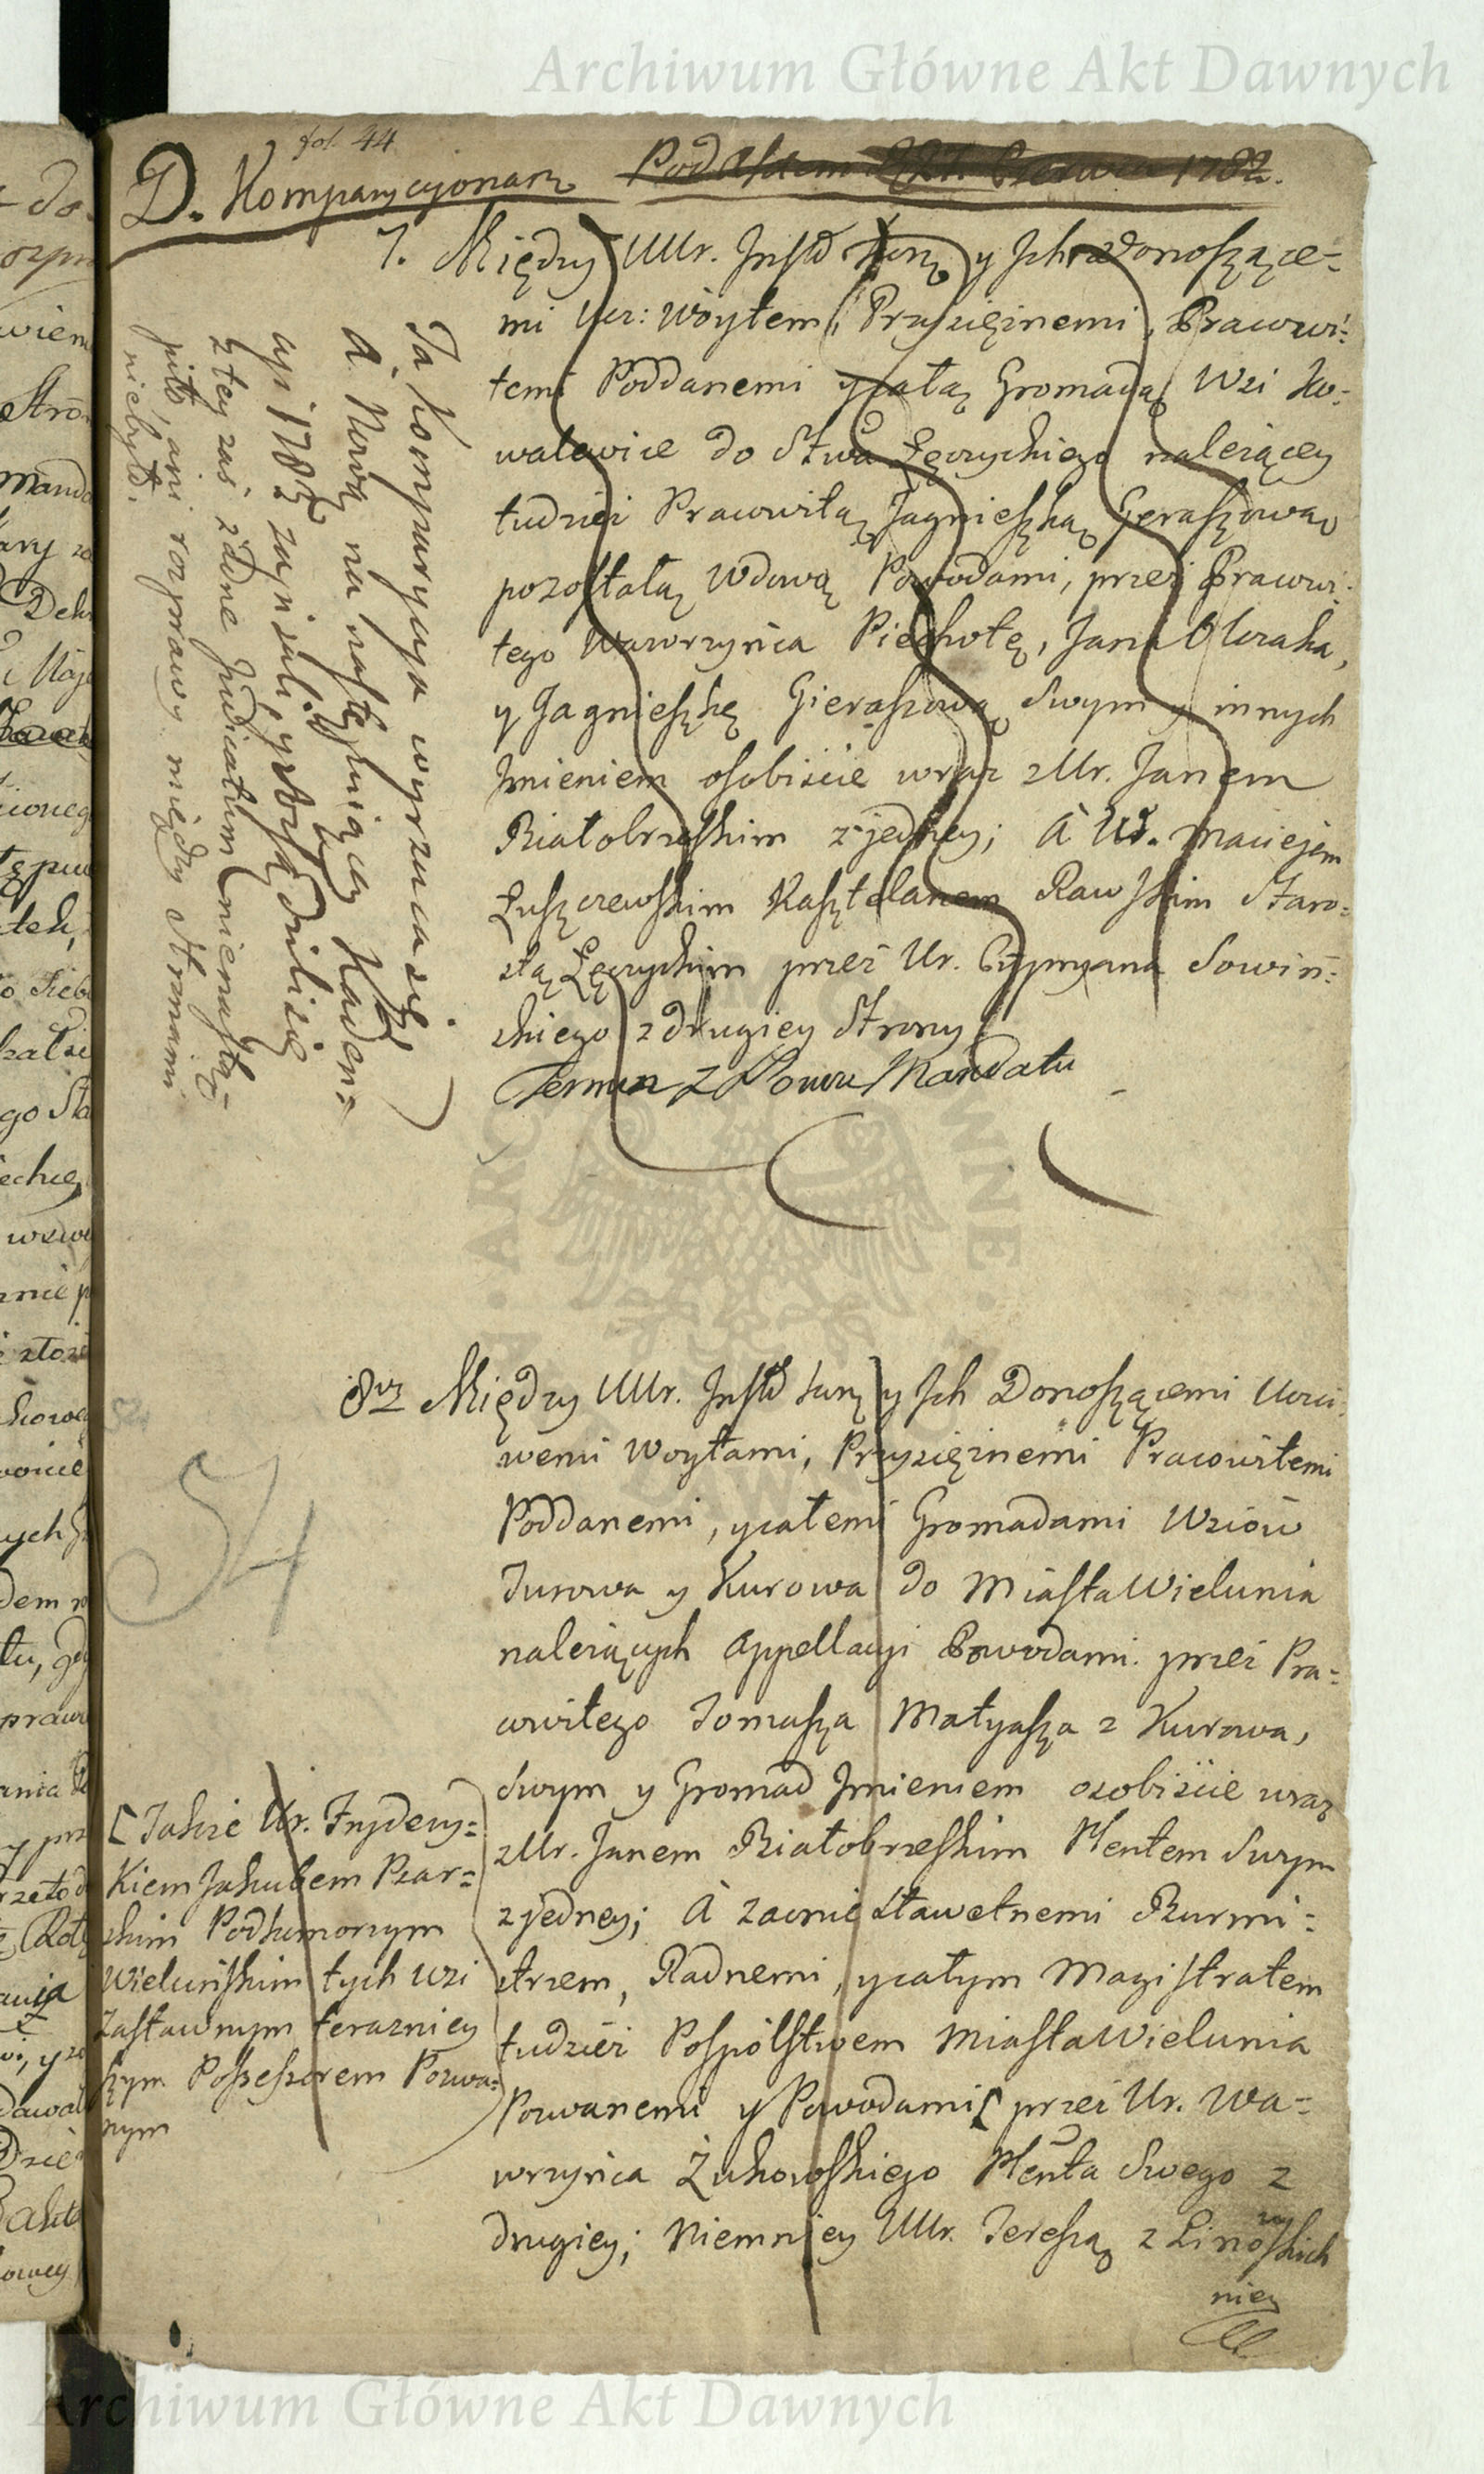 Archiwum Główne Akt Dawnych
fol. 44
D. Komparycyonarz
Pod Aktem Czerwca 1782.
7. Między UUr. Instd Kurą y Ich Donoszące=
mi Ucz: Woytem, Przysięznemi, Pracowi=
temi Poddanemi y całą Gromadą Wsi Ko=
walewice do Stwa Łęczyckiego nalezącey
tudziez Pracowitą Jagnieszką Geraszową
pozostałą Wdową Powodami, przez Pracowi=
tego Wawrzyńca Piechotę, Jana
y Jagnieszkę Gieraszową Swym y innych
Imieniem osobiscie wraz z Ur. Janem
Białobrzeskim z jedney; A W. Maciejem
Łuszczewskim Kasztelanem Rawskim Staro=
stą Łęczyckim przez Ur. Cypryana Sowiń=
skiego z drugiey Strony
Termin z Powu Mandatu
Ta Komparycya wyrzuca się,
A. Nową na następuiącey Kaden=
cyi 1782 zapisali y rozsądzili się
z tey zaś zadne Judicatum nienastą=
piło, ani rozprawy między Stronami
niebyło.
8va Między UUr. Instd Kurą y Ich Donoszącemi Uczci=
wemi Woytami, Przysięznemi Pracowitemi
Poddanemi, y całemi Gromadami Wsiów
Turowa y Kurowa do Miasta Wielunia
nalezących Appellacyi Powodami. przez Pra=
cowitego Tomasza Matyasza z Kurowa,
Swym y Gromad Imieniem osobiście wraz
z Ur. Janem Białobrzeskim Plentem Swym
z jedney; A Zacnie Sławetnemi Burmi=
strzem, Radnemi, y całym Magistratem
tudziez Pospólstwem Miasta Wielunia
Pozwanemi y Powodami [ przez Ur. Wa=
wrzyńca Żukowskiego Plenta Swego z
drugiey; Niemniey UUr. Teresą z Linowskich
niey
54
[ Takze Ur. Frydery=
kiem Jakubem Psar=
skim Podkomorzym
Wieluńskim tych Wsi
Zastawnym terazniey
szym Possessorem Pozwa=
nym
Archiwum Główne Akt Dawnych